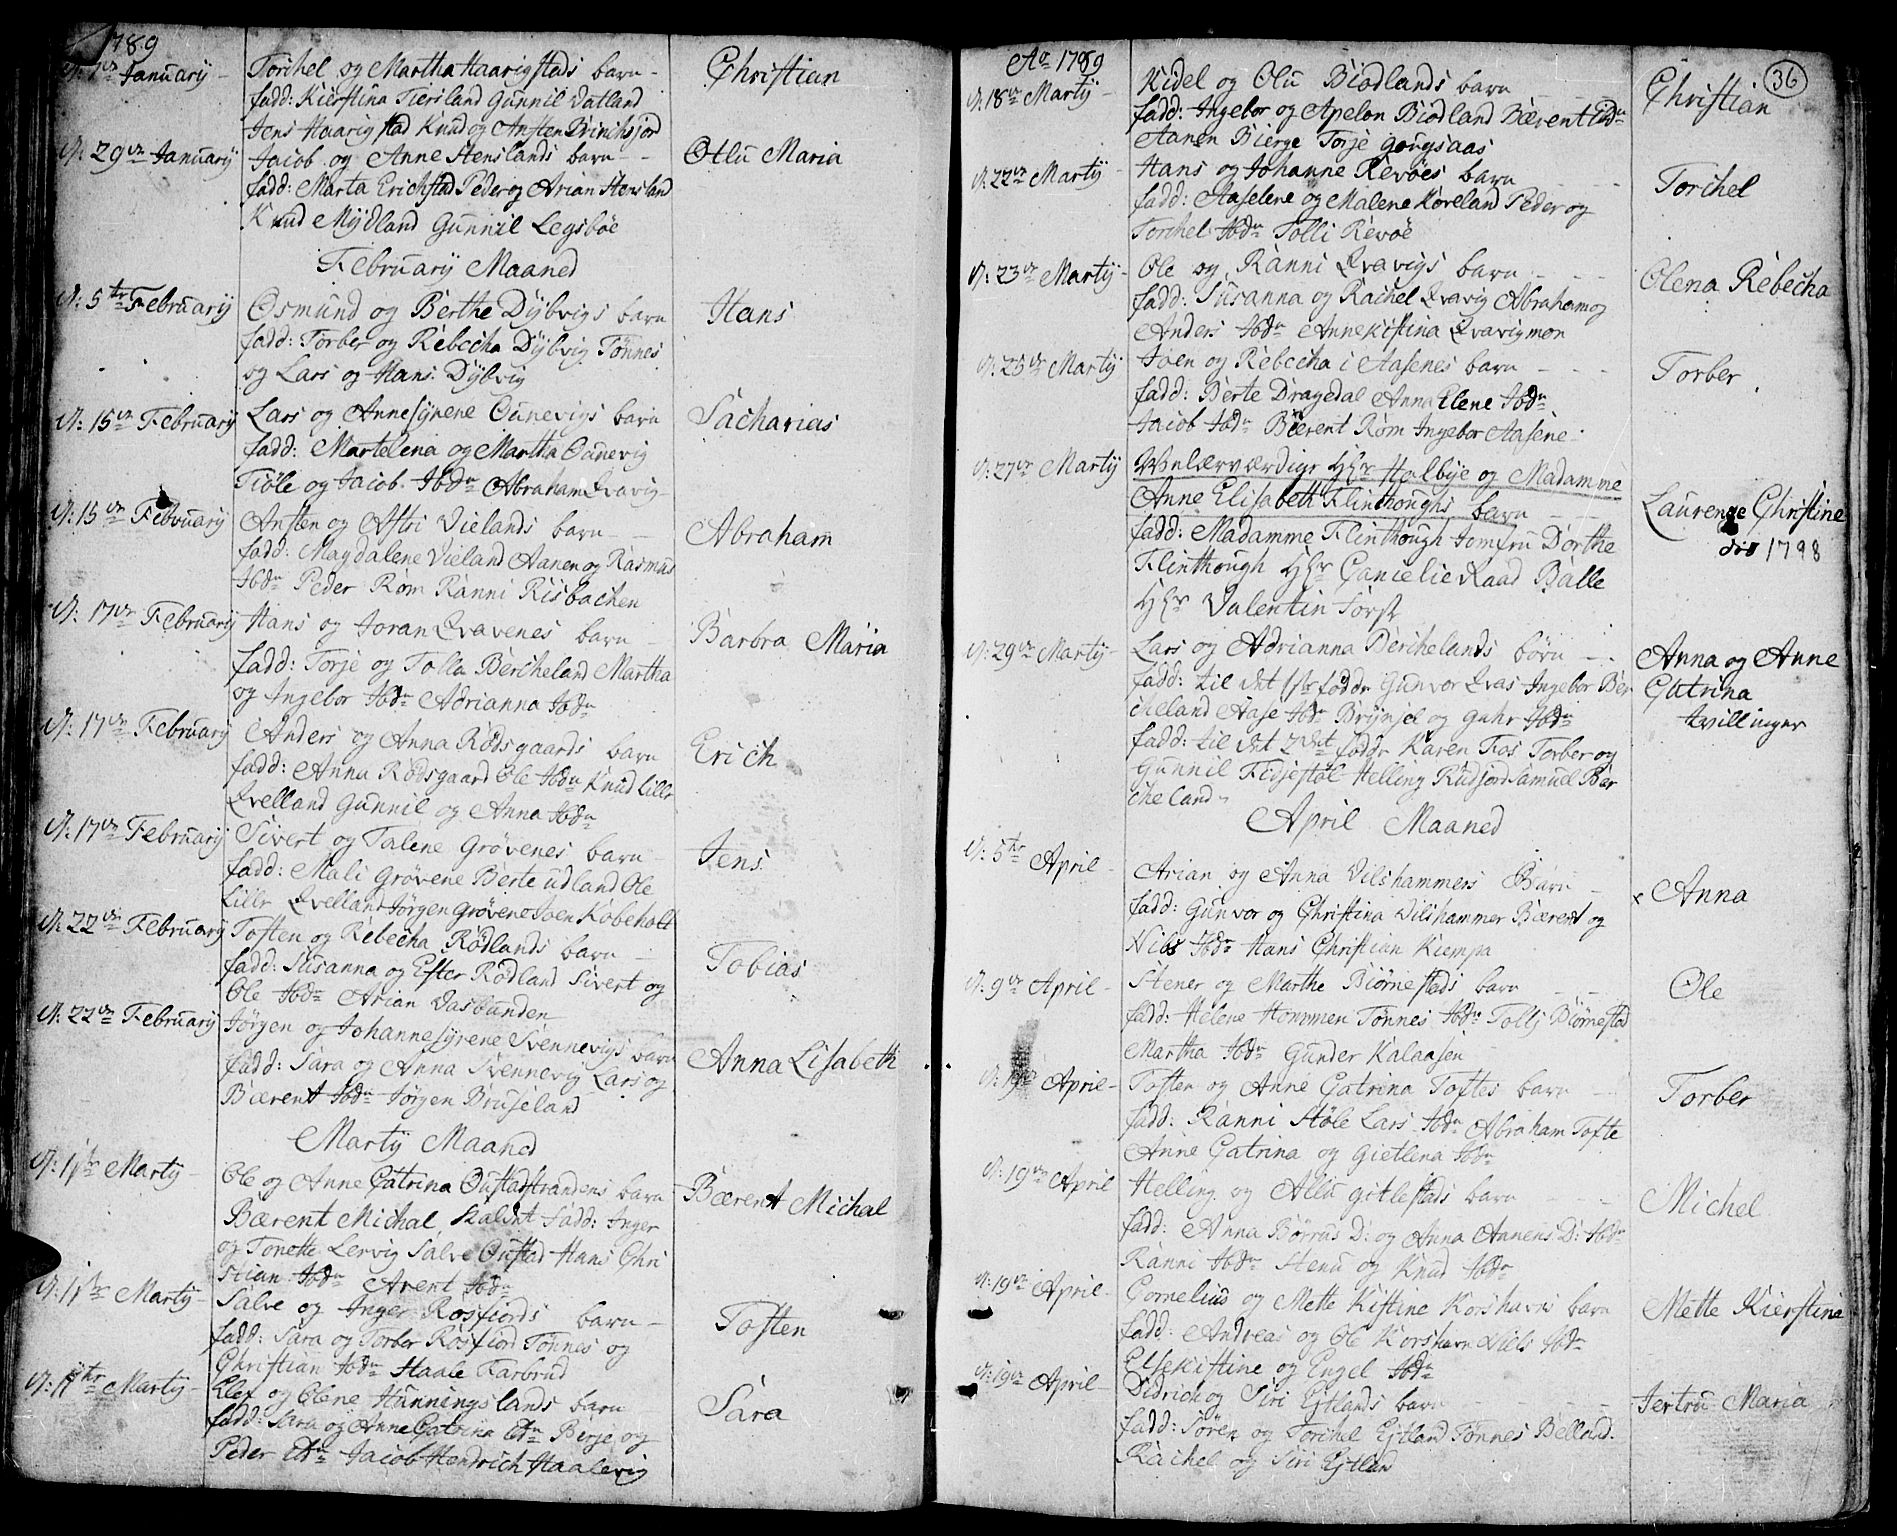 1789
N: 1de January - Torchel og Martha Haarigstads barn - Christian
fadd: Kierstina Fiersland Gunnil Vatland
Jens Haarigstad Knud og Ansten Brinchsjord
N: 29de January Jacob og Anne Stenslands barn - - Ollu Maria
fadd: Marta Erichstad Peder og Arian Stensland
Knud Mydland Gunnil Legsbøe
February Maaned
N: 5te February Osmund og Berthe Dybvigs barn Hans
fadd: Torber og Rebecha Dybvig Tønnes
og Lars og Hans Dybvig
N: 15de February Lars og Annesyrene Ounevigs barn Sacharias
fadd: Martelena og Martha Ounevig
Tiøle og Jacob Ibdn Abraham Qvavig
N: 15de February Ansten og Asbi Vielands barn - Abraham
fadd: Magdalene Vieland Aanen og Rasmus
Ibdn Peder Røm Ranni Risbachen
N: 17de February Hans og Joran Qvavenes barn - Barbra Maria
fadd: Torje og Tolla Bercheland Martha
og Ingebor Ibdn Adrianna Ibdn
N: 17de February Anders og Anna Rødsgaards barn Erich
fadd: Anna Rødsgaard Ole Ibdn Knud Lille
Qvelland Gunnil og Anna Ibdn
N: 17de February Sivert og Talene Grøvenes barn - Jens
fadd: Mali Grøvene Berte Udland Ole
Lille Qvelland Jørgen Grøvene Joen Kobeholt
N: 22de February Tosten og Rebecha Rødlands barn - Tobias
fadd: Susanna og Ester Rødland Sivert og
Ole Ibdn Arian Vasbunden
N: 22de February Jørgen og Johannesyrene Svennevigs barn Anna Lisabeth
fadd: Sara og Anna Svennevig Lars og
Bærent Ibdn Jørgen Bruseland
Marty Maaned
N: 1ste Marty - Ole og Anne Catrina Oustadstrandens barn Bærent Michal
Bærent Michal kaldet fadd: Inger
og Tonette Lervig Salve Oustad Hans Chri
stian Ibdn Arent Ibdn
N: 1ste Marty - Salve og Inger Rosfiords barn - Tosten
fadd: Sara og Torber Rosfiord Tønnes og
Christian Ibdn Haale Farbrud
Marty - Elef og Olene Hunningslands barn Sara
fadd: Sara og Anne Catrina Ibdn Berje og
Peder Ibdn Jacob Hendrich Haalevig
Ao 1789
36
N: 18de Marty - Kidel og Olu Biodlands barn Christian
fadd: Ingebor og Apelon Biodland Bærent
Aanen Bierge Torje
N: 22de Marty - Hans og Johanne Revøes barn Torchel
fadd: Aaselene og Malene Koreland Peder og
Torchel Ibdn Tolli Revøe
N: 23de Marty - Ole og Ranni Qvavigs barn - - - Olena Rebecha
fadd: Susanna og Rachel Qvavig Abraham og
Anders Ibdn Annekistina Qvavigmon
N: 25de Marty Joen og Rebecha i Aasenes barn - - - Torber
fadd: Berte Dragedal Anna Elene Ibdn
Jacob Ibdn Bærent Røm Ingebor Aasene
N: 27de Marty Velærværdige Hr Halbye og Madamme
Anne Elisabeth Flinthoughs barn - - Laurenze Christine
fadd: Madamme Flinthough Jomfru Dorthe død 1798
Flinthough Hr Cancelie Raad Balle
Hr Valentin Forst
N: 29de Marty - Lars og Adrianna Berchelands børn - Anna og Anne
fadd: til det 1ste fødde Gunvor Qvas Ingebor Ber Catrina
cheland Aase Ibdn Brynjel og Guhr Ibdn tvillinger
fadd: til det 2det fødde Karen Fos Torber og
Gunnil Fidjestøl Helling Rudjord Samuel Ber
cheland
April Maaned
N: 5te April - Arian og Anna Vilshammers Barn - Anna
fadd: Gunvor og Christina Vilshammer Bærent og
Niels Ibdn Hans Christian Kiempa
N: 9de April - Stener og Marthe Biørnestads barn - - Ole
fadd: Helene Hommen Tønnes Ibdn Tollj Biørnestad
Martha Ibdn Gunder Kalaasen
April - Tosten og Anne Catrina Toftes barn - Torber
fadd: Ranni Støle Lars Ibdn Abraham Tofte
Anne Catrina og Gietlena Ibdn
N: 19de April Helling og Allu Gitlestads barn - - Michel
fadd: Anna Børrus D: og Anna Aanens D: Ibdn
Ranni Ibdn Stenu og Knud Ibdn
N: 19de April - Cornelius og Mette Kistine Korshavns barn Mette Kierstine
fadd: Andreas og Ole Korshavn Niels Ibdn
Elsekistine og Engel Ibdn
N: 19de April - Didrich og Siri Ejtlands barn - - - Jertru Maria
fadd: Søren og Torchel Ejtland Tønnes Belland
Rachel og Siri Ejtland